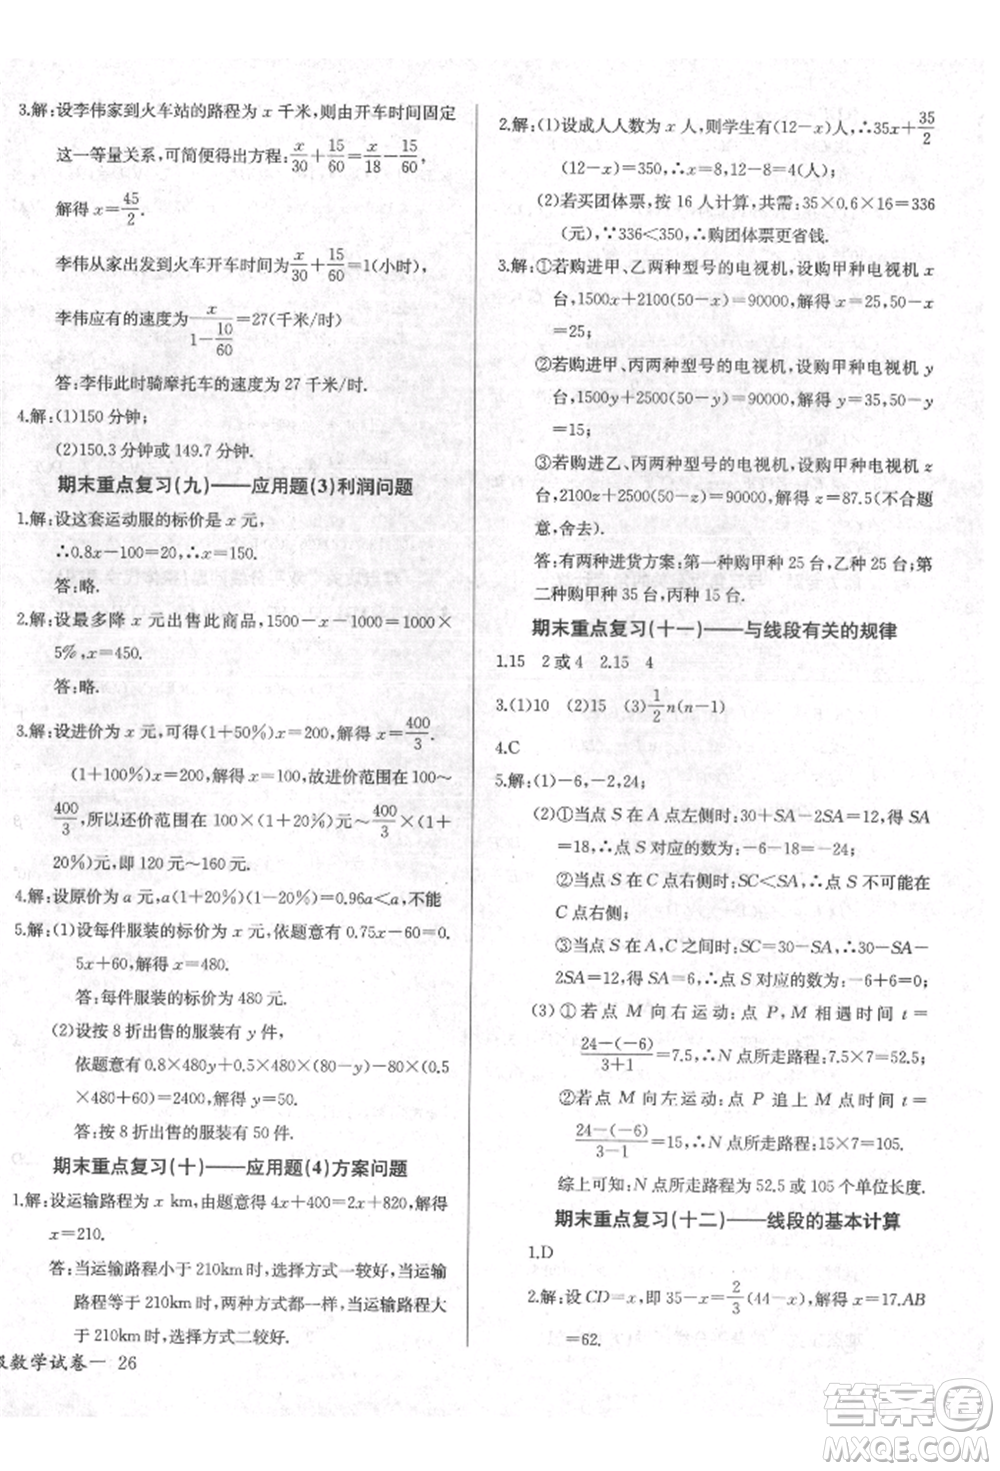 3.解:设李伟家到火车站的路程为 x 千米,则由开车时间固定
这一等量关系,可简便得出方程:x/30+15/60=x/18−15/60,
解得 x=45/2.
李伟从家出发到火车开车时间为x/30+15/60=1(小时),
李伟应有的速度为x/(1−10/60)=27(千米/时)
答:李伟此时骑摩托车的速度为 27 千米/时.
4.解:(1)150 分钟;
(2)150.3 分钟或 149.7 分钟.
期末重点复习(九)——应用题(3)利润问题
1.解:设这套运动服的标价是 x 元,
∴0.8x−100=20,∴x=150.
答:略.
2.解:设最多降 x 元出售此商品,1500−x−1000=1000×
5%,x=450.
答:略.
3.解:设进价为 x 元,可得(1+50%)x=200,解得 x=400/3.
(1+100%)x=200,解得 x=100,故进价范围在 100~
400/3,所以还价范围在 100×(1+20%)~400/3×(1+
20%)元,即 120 元~160 元.
4.解:设原价为 a 元,a(1+20%)(1−20%)=0.96a<a,不能
5.解:(1)设每件服装的标价为 x 元,依题意有 0.75x−60=0.
5x+60,解得 x=480.
答:每件服装的标价为 480 元.
(2)设按 8 折出售的服装有 y 件,
依题意有 0.8×480y+0.5×480(100−y)−100×(0.5
×480+60)=−22800,解得 y=50.
答:按 8 折出售的服装有 50 件.
期末重点复习(十)——应用题(4)方案问题
1.解:设运输路程为 x km,由题意得 4x+400=2x+820,解得
x=210.
答:当运输路程小于 210km 时,选择方式一较好,当运输
路程等于 210km 时,两种方式都一样,当运输路程大
于 210km 时,选择方式二较好.
级数学试卷— 26
2.解:(1)设成人人数为 x 人,则学生有(12−x)人,∴35x+35/2
(12−x)=350,∴x=8,12−8=4(人);
(2)若买团体票,按 16 人计算,共需:35×0.6×16=336
(元),∵336<350,∴购团体票更省钱.
3.解:①若购进甲、乙两种型号的电视机,设购甲种电视机 x
台,1500x+2100(50−x)=90000,解得 x=25,50−x
=25;
②若购进甲、丙两种型号的电视机,设购甲种电视机 y
台,1500y+2500(50−y)=90000,解得 y=35,50−y
=15;
③若购进乙、丙两种型号的电视机,设购乙种电视机 z
台,2100z+2500(50−z)=90000,解得 z=87.5(不合题
意,舍去).
答:有两种进货方案:第一种购甲种 25 台,乙种 25 台;第
二种购甲种 35 台,丙种 15 台.
期末重点复习(十一)——与线段有关的规律
1.15 2 或 4 2.15 4
3.(1)10 (2)15 (3)1/2n(n−1)
4.C
5.解:(1)−6,−2,24;
(2)①当点 S 在 A 点左侧时:30+SA−2SA=12,得 SA
=18,∴点 S 对应的数为:−6−18=−24;
②当点 S 在 C 点右侧时:SC<SA,∴点 S 不可能在
C 点右侧;
③当点 S 在 A,C 之间时:SC=30−SA,∴30−SA−
2SA=12,∴SA=6,∴点 S 对应的数为:−6+6=0;
(3)①若点 M 向右运动:点 P,M 相遇时间 t=
24−(−6)/3+1=7.5,∴N 点所走路程:7.5×7=52.5;
②若点 M 向左运动:点 P 追上 M 点时间 t=
24−(−6)/3−1=15,∴N 点所走路程:15×7=105.
综上可知:N 点所走路程为 52.5 或 105 个单位长度.
期末重点复习(十二)——线段的基本计算
1.D
2.解:设 CD=x,即 35−x=2/3(44−x),解得:x=17.AB
=62.
答案圈
MXQE.COM